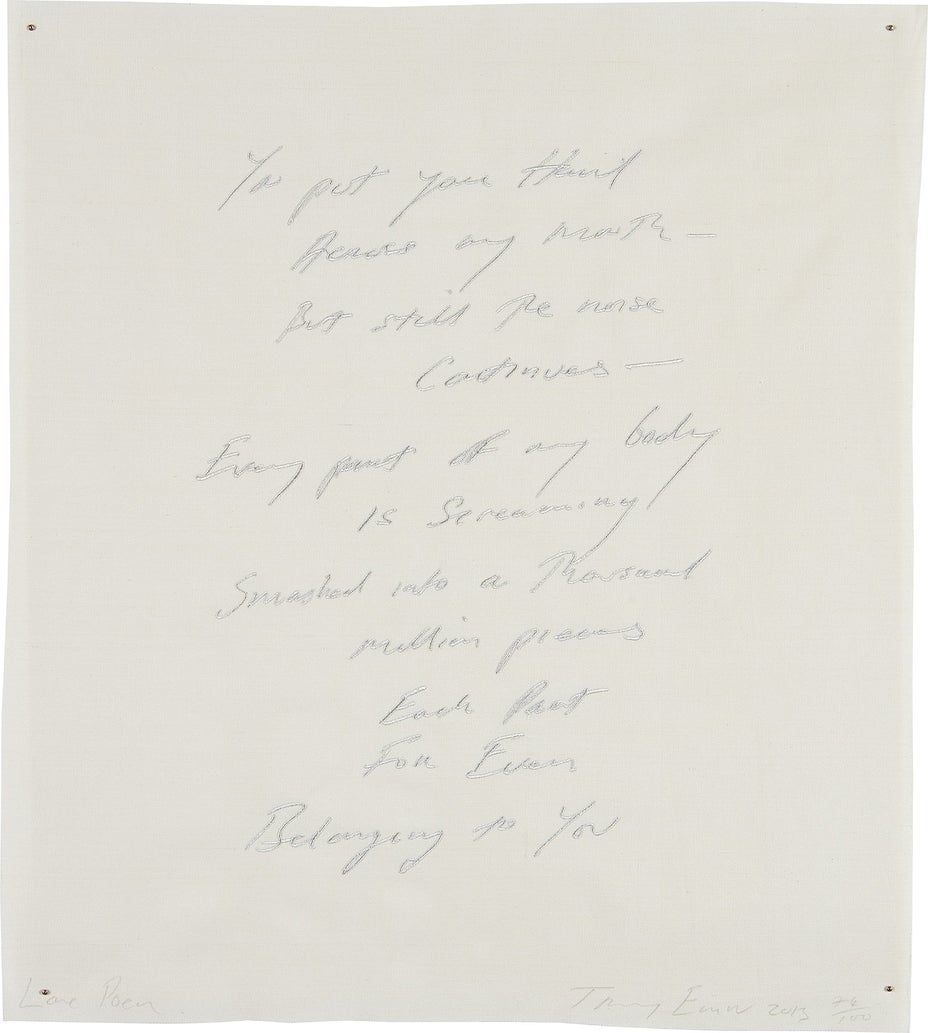 You put your Hand
Across my mouth —
But still the noise
Continues —
Every part of my body
Is Screaming
Smashed into a Thousand
million pieces
Each Part
For Ever
Belonging to You
Love Poem
Tracey Emin 2013 76/100